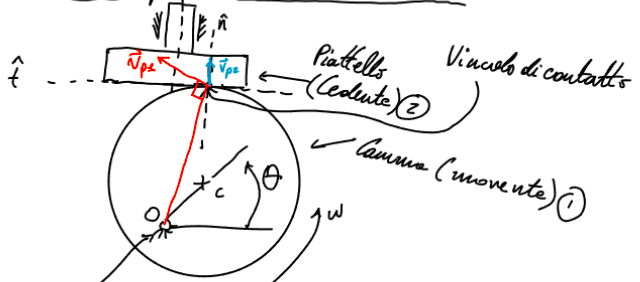 n̂
t̂
v⃗p1
v⃗p2
Piattello
(Cedente) ②
Vincolo di contatto
Camma (movente) ①
θ
C
O
ω